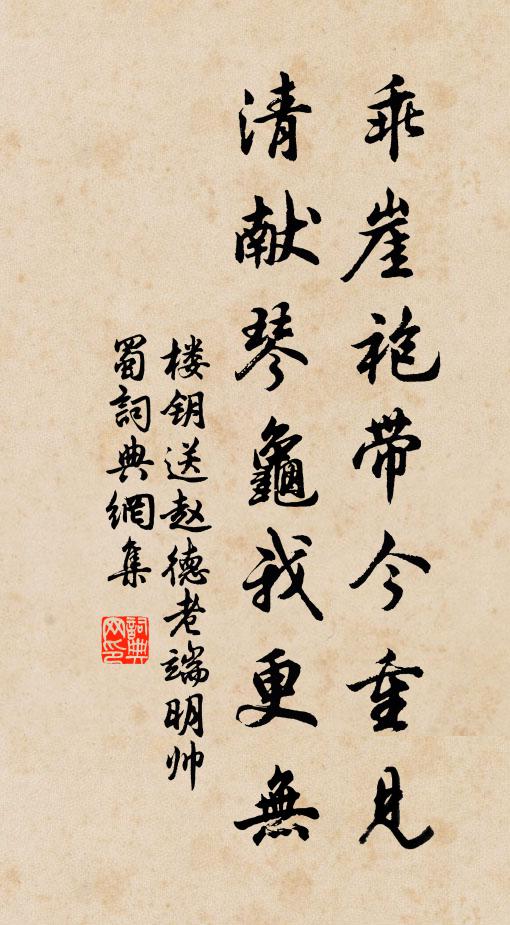 乖崖袍带今重见
清献琴龜我更無
楼钥送赵德老端明帅
蜀詞典網集
詞典网印